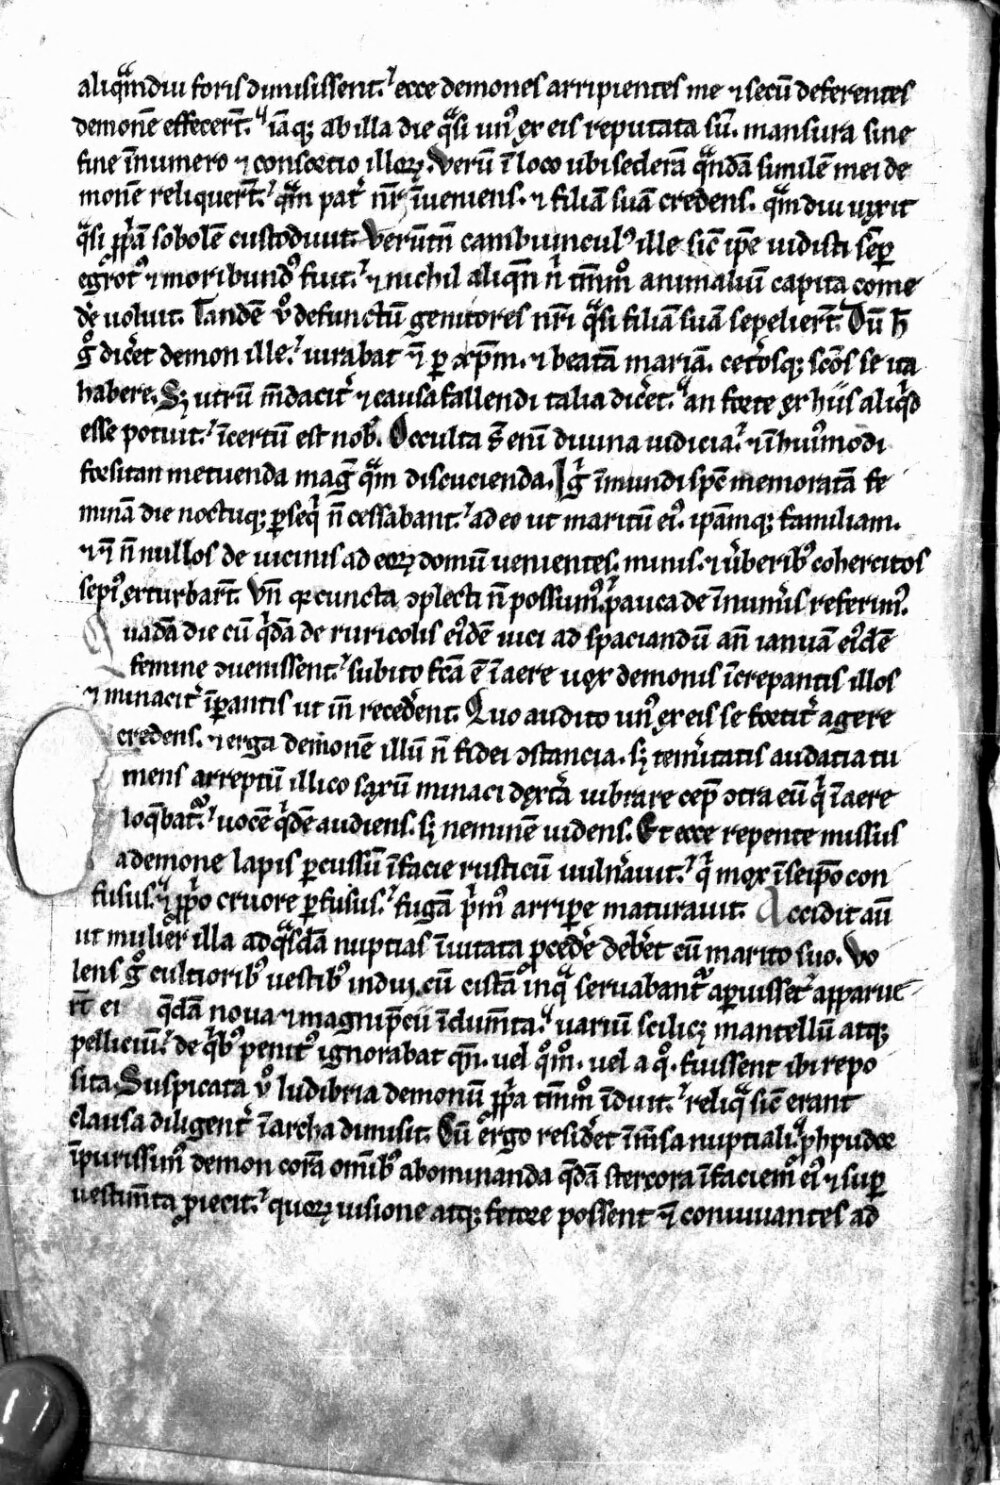 aliqͣmdiu foris dimisissent. ecce demones arripientes me ⁊ secū deferentes
demonē effecerт̄. iāq; ab illa die qͣsi un᷒ ex eis reputata sū. mansura sine
fine īnumero ⁊ consortio illoꝝ. Verū ī loco ubi sederā qͣndā similē mei de
monē reliquerт̄. qͣm pat᷑ nr̄ īueniens. ⁊ filiā suā credens. qͣmdiu uixit
qͣsi ꝓp̄ā sobolē custodiuit. Verūtn̄ cambiuncul᷒ ille sic̄ ip̄e uidisti semꝑ
egrot᷒ ⁊ moribund᷒ fuit. ⁊ nichil aliqn̄ nͥ tm̄mͦ animaliū capita come
de᷑ uoluit. Tandē uͦ defunctū genitores nr̄i qͣsi filiā suā sepelierт̄. Dū h̄
gͦ dic᷑et demon ille. iurabat ⁊̄ ꝑ xp̄m. ⁊ beatā mariā. cet᷑osq; sc̄os se ita
habere. Sꝫ utrū m̄dacit᷑ ⁊ causa fallendi talia dic᷑et. an forte ex hiis aliqͥd
esse potuit. īcertū est nob᷒. Occulta s̄ enī diuina iudicia. ⁊ ī hui᷒modi
forsitan metuenda maḡ qͣm discucienda. Igͥ īmundi sp̄c memoratā fe
minā die noctuq; ꝑseqͥ n̄ cessabant. adeo ut maritū ei᷒. ipāmq; familiam.
⁊ n̄nullos de uicinis ad eoꝝ domū uenientes. minis. ⁊ u᷑berib᷒ cohercitos
sepi᷒ exturbarт̄. Vn̄ qꝛ cuncta ꝯplecti n̄ possum᷒. pauca de īnum᷑is referim᷒.
Quadā die cū qͥdā de ruricolis ei᷒dē uici ad spaciandū an̄ ianuā ei᷒dē
femine ꝯuenissent. subito fc̄a ē ī aere uox demonis īcrepantis illos
⁊ minacit᷑ īꝑantis ut in̄ reced᷑ent. Quo audito un᷒ ex eis se fortit᷑ agere
credens. ⁊ erga demonē illū n̄ fidei ꝯstancia. sꝫ tem᷑itatis audatia tu
mens arreptū illico saxū minaci dext᷑a uibrare cep̄ ꝯtra eū qͥ ī aere
loq̄bat᷑. uocē qͥdē audiens. sꝫ neminē uidens. Et ecce repente missus
a demone lapis ꝑcussū ī facie rusticū uuln᷑auit. qͥ mox ī seip̄o con
fusus. ⁊ ꝓp̄o cruore ꝑfusus. fugā pͥm᷒ arripe᷑ maturauit. Accidit aū
ut mulier illa ad qͣsdā nuptias īuitata ꝓcede᷑ deb᷑et cū marito suo. Vo
lens gͦ cultiorib᷒ uestib᷒ indui. cū cistā inqͣ seruabant᷑ aꝑuisset. apparue
rт̄ ei q̄dā noua ⁊ magnip̄cii īdum̄ta. uariū scilicꝫ mantellū atq;
pelliciū. de qͥb᷒ penit᷒ ignorabat qn̄. uel qͦmͦ. uel a qͦ. fuissent ibi repo
sita. Suspicata uͦ ludibria demonū ꝓp̄a tm̄mͦ īduit. reliqͣ sic̄ erant
clausa diligent᷑ ī archa dimisit. Dū ergo resid᷑et ī m̄sa nuptiali. ꝓh pudor
īpurissim᷒ demon corā om̄ib᷒ abominanda q̄dā stercora ī faciem ei᷒ ⁊ suꝑ
uestim̄ta ꝓiecit. quoꝝ uisione atq; fetore possent ⁊̄ conuiuantes ad